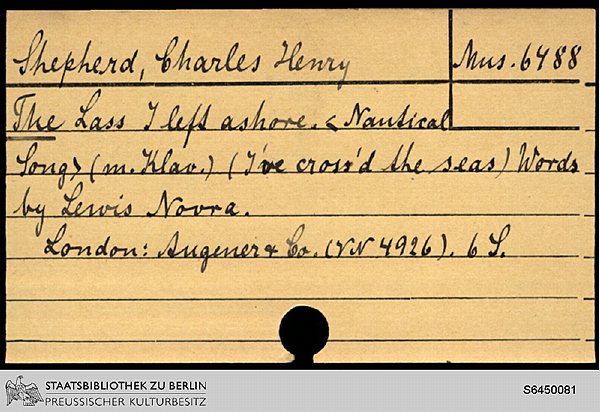 Shepherd, Charles Henry
Mus. 6488
The Lass I left ashore. < Nautical
Song> (m. Klav.) (I've cross'd the seas) Words
by Lewis Novra.
London: Augener & Co. (VN 4926). 6 S.
STAATSBIBLIOTHEK ZU BERLIN
PREUSSISCHER KULTURBESITZ
S6450081